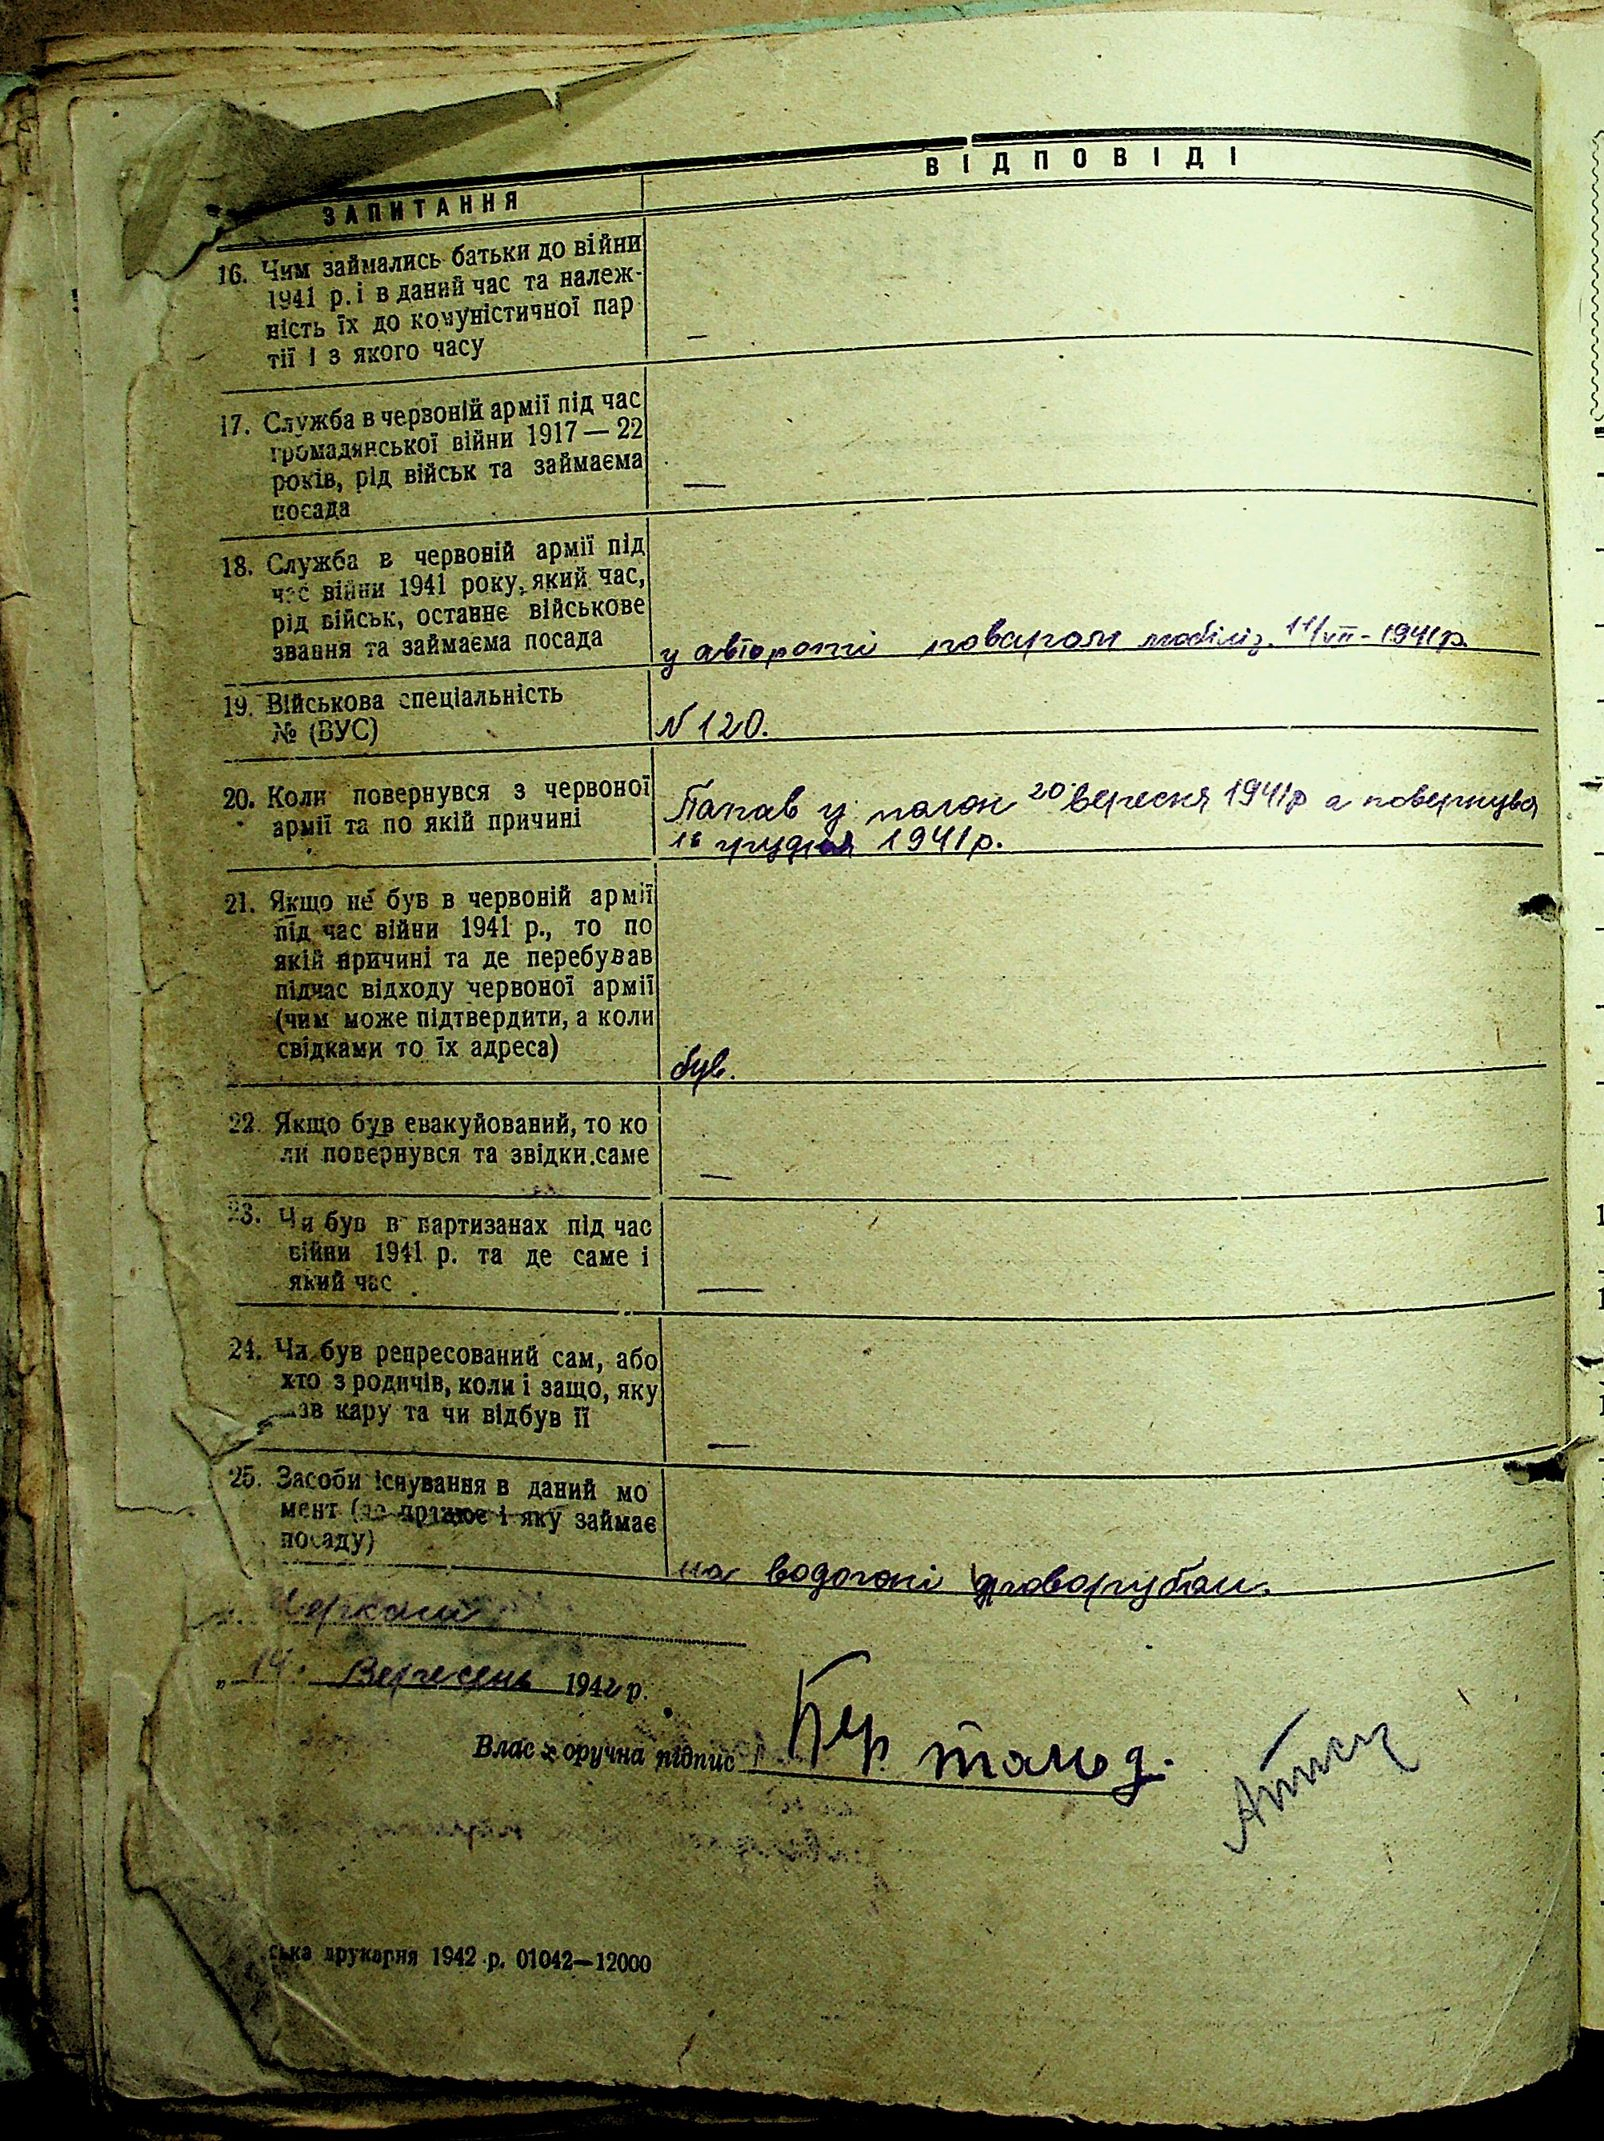 ЗАПИТАННЯ
ВІДПОВІДІ
16. Чим займались батьки до війни
1941 р. і в даний час та належ-
ність їх до комуністичної пар
тії і з якого часу
—
17. Служба в червоній армії під час
громадянської війни 1917—22
років, рід військ та займаєма
посада
—
18. Служба в червоній армії під
час війни 1941 року, який час,
рід військ, останнє військове
звання та займаєма посада
у автороті поваром мобіліз. 11/VII-1941р.
19. Військова спеціальність
№ (ВУС)
N 120.
20. Коли повернувся з червоної
армії та по якій причині
Папав у полон 20 вересня 1941р а повернувся
16 грудня 1941р.
21. Якщо не був в червоній армії
під час війни 1941 р., то по
якій причині та де перебував
підчас відходу червоної армії
(чим може підтвердити, а коли
свідками то їх адреса)
був.
22. Якщо був евакуйований, то ко
ли повернувся та звідки саме
—
23. Чи був в партизанах під час
війни 1941 р. та де саме і
який час
—
24. Чи був репресований сам, або
хто з родичів, коли і защо, яку
мав кару та чи відбув її
—
25. Засоби існування в даний мо
мент (де працює і яку займає
посаду)
на водогоні дроворубом.
м. Черкаси
„ 14 " Вересень 1942 р.
Власноручна підпис
ська друкарня 1942 р. 01042—12000